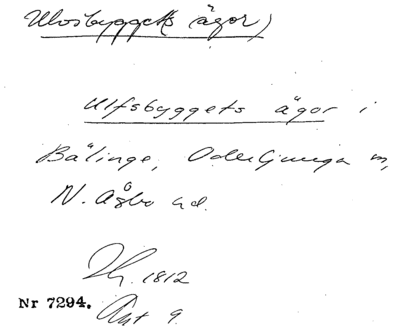 Ulvsbyggets ägor)
Ulfsbyggets ägor i
Bälinge, Oderljunga sn,
N. Åsbo hd.
Th. 1812
Nr 7294. Akt 9.